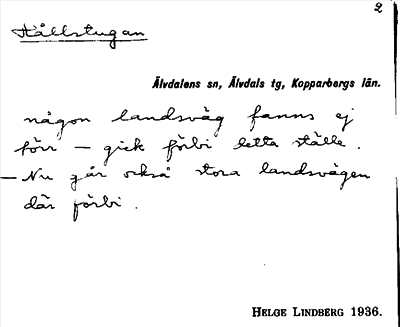 2
Hållstugan
Älvdalens sn, Älvdals tg, Kopparbergs län.
någon landsväg fanns ej
förr – gick förbi detta ställe.
– Nu går också stora landsvägen
där förbi.
HELGE LINDBERG 1936.